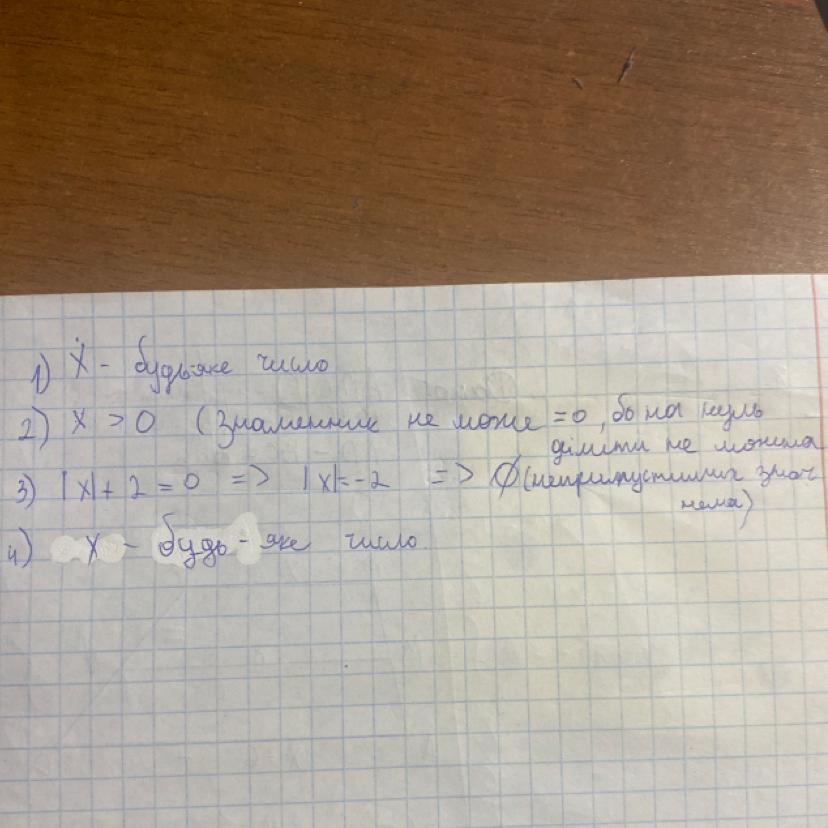 1) x - будь-яке число
2) x > 0 (Знаменник не може =0, бо на нуль
ділити не можна
3) |x|+2=0 => |x|=-2 => ∅ (неприпустимих знач
нема)
4) x - будь-яке число